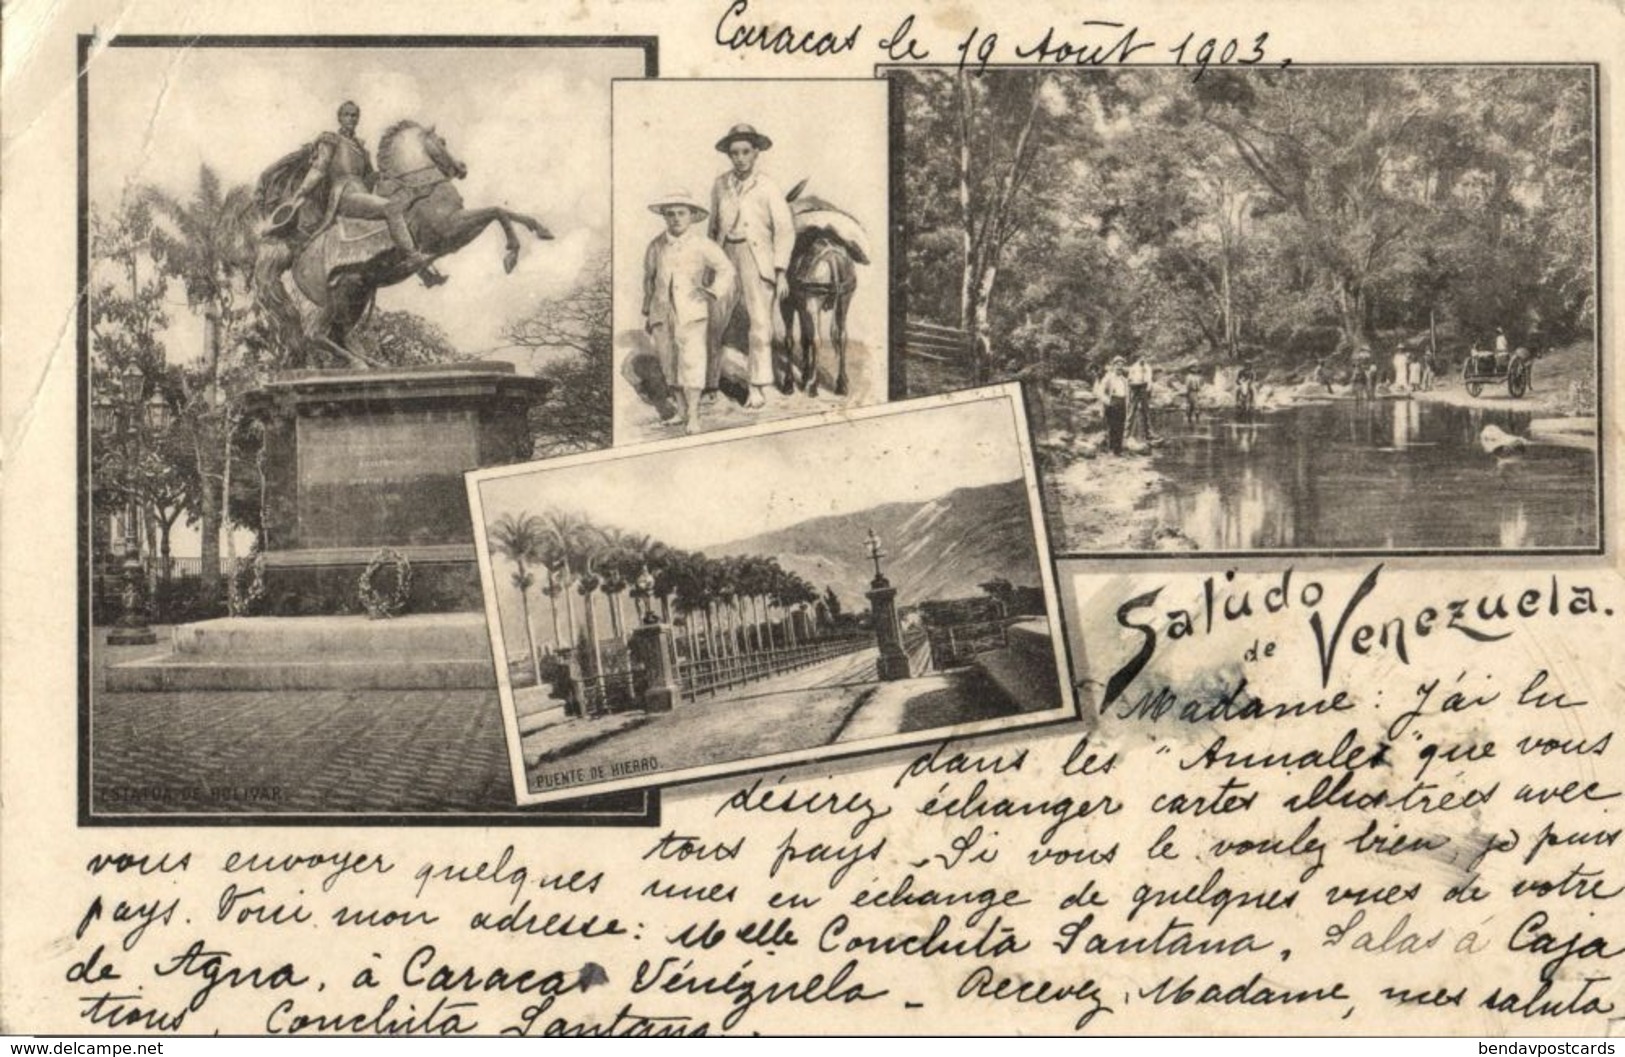 Caracas le 19 Août 1903.
ESTATUA DE BOLIVAR
PUENTE DE HIERRO.
Saludo
de Venezuela.
Madame: J'ai lu
dans les "Annales" que vous
désirez échanger cartes illustrées avec
tous pays. Si vous le voulez bien, je puis
vous envoyer quelques unes en échange de quelques vues de votre
pays. Voici mon adresse: Melle Conchita Santana, Salas á Caja
de Agua, à Caracas Vénézuela - Recevez, Madame, mes saluta
tions, Conchita Santana.
www.delcampe.net
bendavpostcards